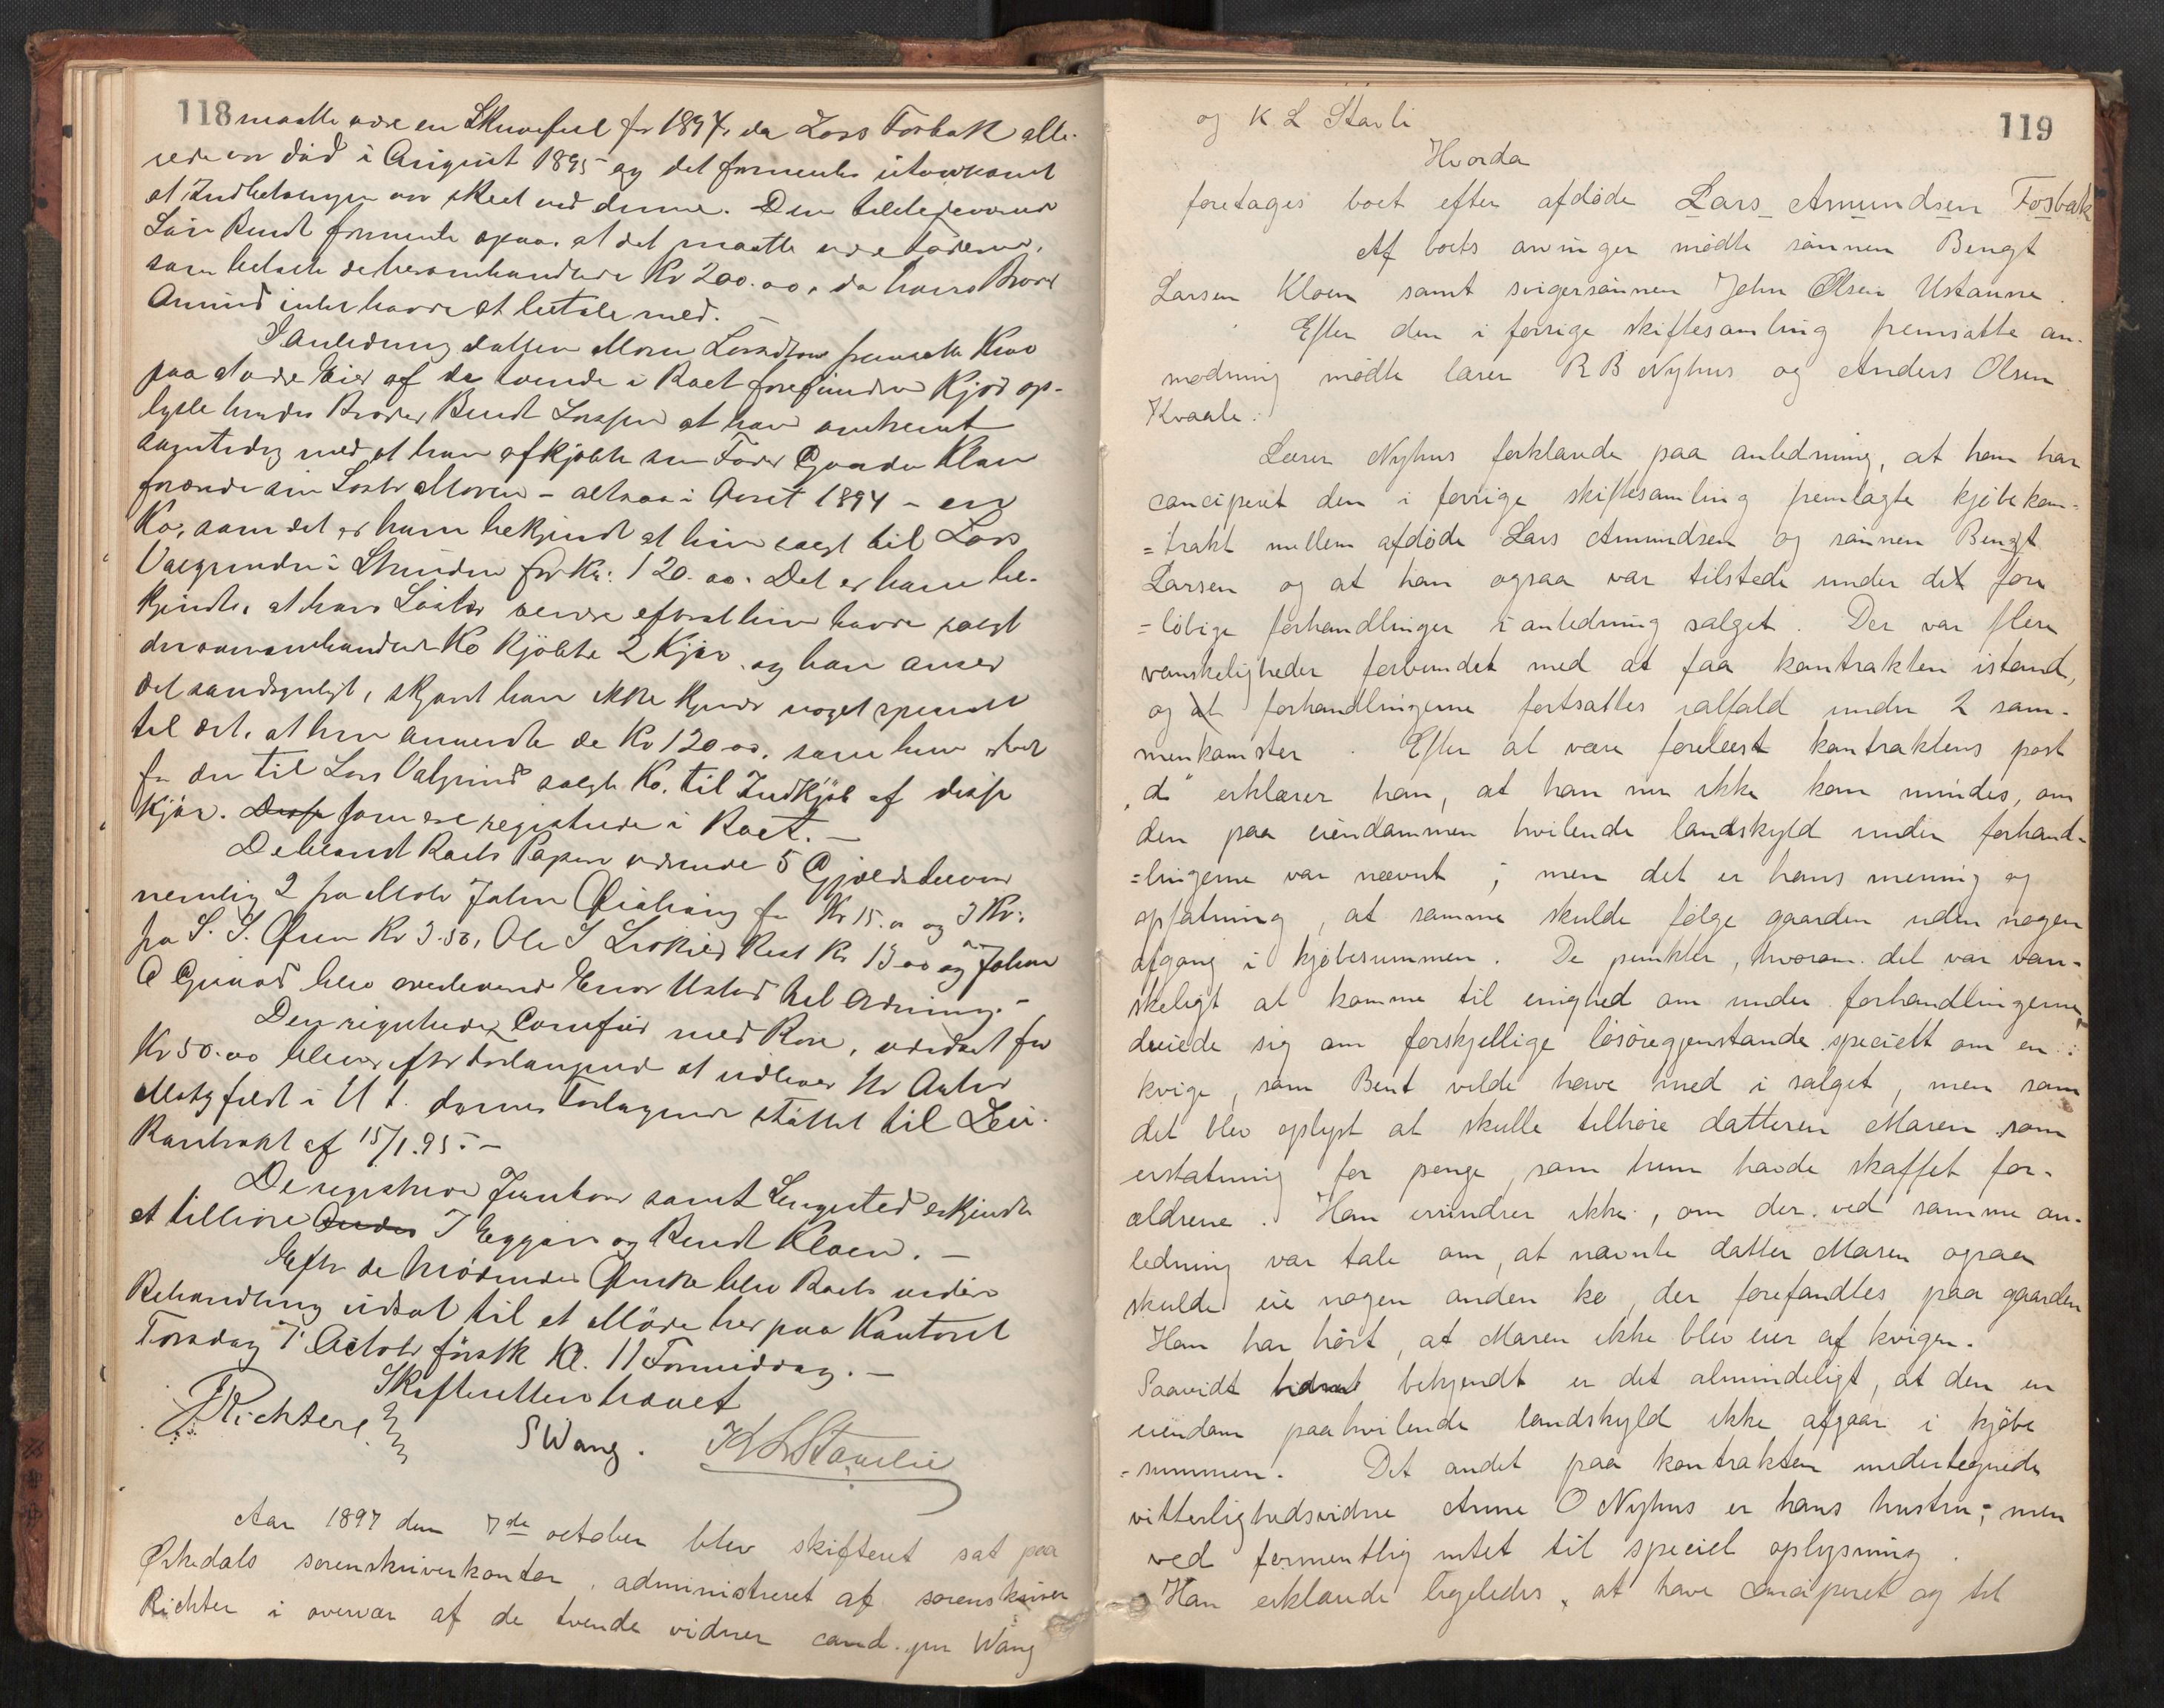 118 maatte være en Skrivefeil for 1894, da Lars Fosbak alle-
rede var død i August 1895 og det formentes utvivlsomt
at Indbetalingen var skeet ved denne. Den tilstedeværende
Søn Bendt formente ogsaa, at det maatte være Faderen,
som betalte de heromhandlede Kr 200.00, da hans Broder
Amund intet havde at betale med. –
I Anledning Datteren Maren Larsdatters fremsatte Krav
paa at være Eier af de tvende i Boet forefundne Kjør op-
lyste hendes Broder Bendt Larssen at han omtrent
samtidig med at han afkjøbte sin Fader Gaarden Kloen
forærede sin Søster Maren – altsaa i Aaret 1894 – en
Ko, som det er ham bekjendt at hun solgte til Lars
Valgrinden i Skrinden for Kr. 120.00. Det er ham be-
kjendt, at hans Søster senere efterat hun havde solgt
den ovenomhandlede Ko kjøbte 2 Kjør og han anser
det sandsynligt, skjønt han ikke kjender noget specielt
til det, at hun anvendte de Kr 120.00, som hun erholdt
for den til Lars Valgrind solgte Ko, til Indkjøb af disse
Kjør. Disse som ere registrerede i Boet. –
De blandt Boets Papirer værende 5 Gjældsbreve
nemlig 2 fra John for Kr 15.00 og 3 Kr.
fra S. S. Øren Kr 3.50, Ole S Rest Kr 13.00 og Johan
A blev overleveret Enos Ustad til Indrivning. –
Den registrerede Comfur med Rør, vurderet for
Kr 50.00 bliver efter Forlangende at udlevere Hr Anton
Motzfeldt i H t. dennes Forlangende støttet til Leie-
Kontrakt af 15/1.95. –
De registrerede samt Sengested erkjendte
at tilhøre Anders I Eggan og Bendt Kloen. –
Efter de Mødendes Ønske blev Boets videre
Behandling udsat til et Møde her paa Kontoret
Torsdag 7 October førstk Kl. 11 Formiddag. –
Skifteretten hævet
Richter S Wang. K L Stavlie
Aar 1897 den 7de october blev skifteret sat paa
Ørkedals sorenskriverkontor, administreret af sorenskriver
Richter i overvær af de tvende vidner cand. jur Wang
119
og K L Stavli
Hvorda
foretages boet efter afdøde Lars Amundsen Fosbak
Af boets arvinger mødte sønnen Bengt
Larsen Kloen samt svigersønnen John Olsen Ustanne.
Efter den i forrige skiftesamling fremsatte an-
modning mødte lærer R B Nyhus og Anders Olsen
Kvaale.
Lærer Nyhus forklarede paa anledning, at han har
conciperet den i forrige skiftesamling fremlagte kjøbekon-
=trakt mellem afdøde Lars Amundsen og sønnen Bengt
Larsen og at han ogsaa var tilstede under det fore
=løbige forhandlinger i anledning salget. Der var flere
vanskeligheder forbundet med at faa kontrakten istand,
og at forhandlingerne fortsattes ialfald under 2 sam-
menkomster. Efter at være forelæst kontraktens post
„d“ erklærer han, at han nu ikke kan mindes, om
den paa eiendommen hvilende landskyld under forhand-
=lingerne var nævnt; men det er hans mening og
opfatning, at samme skulde følge gaarden uden nogen
afgang i kjøbesummen. De punkter, hvorom det var van-
skeligt at komme til enighed om under forhandlingerne,
dreiede sig om forskjellige løsøregjenstande specielt om en
kvige, som Bent vilde have med i salget, men som
det blev oplyst at skulle tilhøre datteren Maren som
erstatning for penge, som hun havde skaffet for-
ældrene. Han erindrer ikke, om der ved samme an-
ledning var tale om, at nævnte datter Maren ogsaa
skulde eie nogen anden ko, der forefandtes paa gaarden
Han har hørt, at Maren ikke blev eier af kvigen.
Saavidt bekjendt er det almindeligt, at den en
eiendom paahvilende landskyld ikke afgaar i kjøbe
-summen. Det andet paa kontrakten undertegnede
vitterlighedsvidne Anne O Nyhus er hans hustru; men
ved formentlig intet til speciel oplysning.
Han erklærede ligeledes, at have conciperet og til